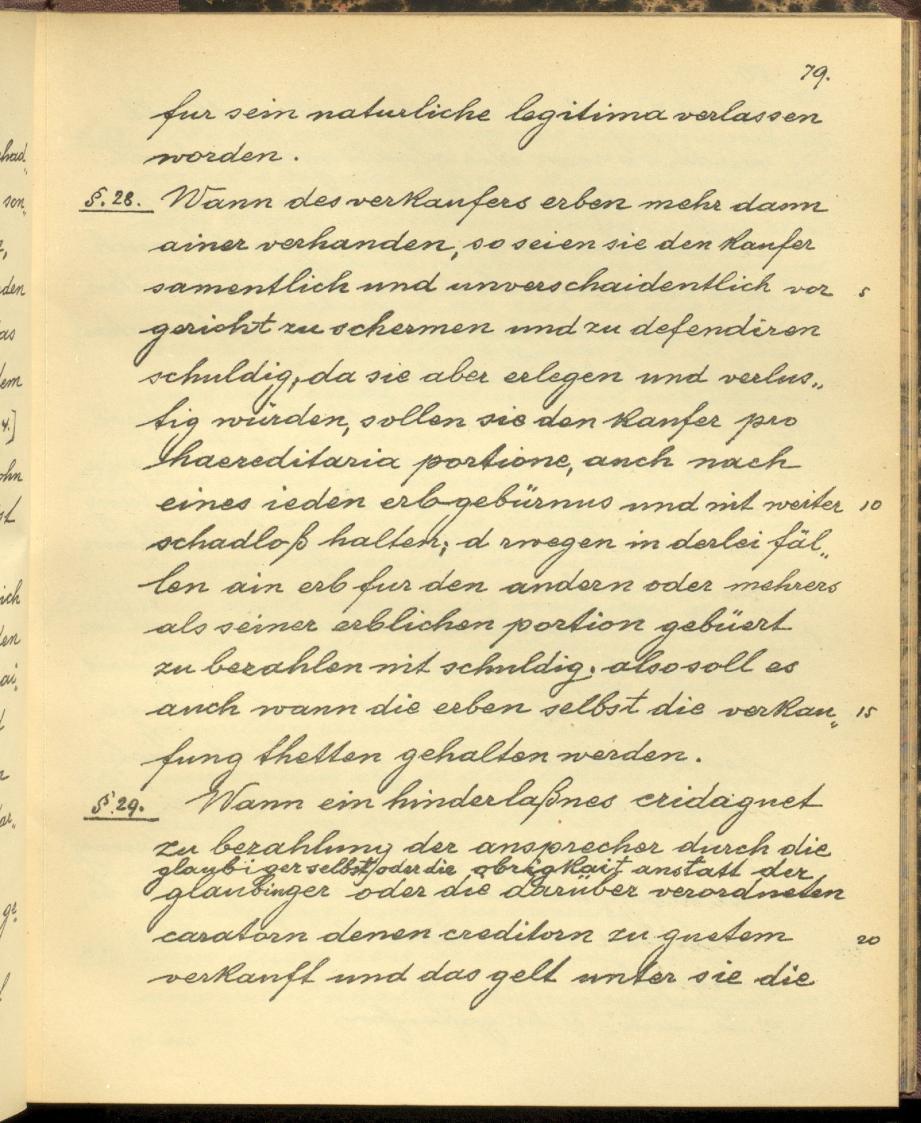 79.
fur sein naturliche legitima verlassen
worden.
§. 28. Wann des verkaufers erben mehr dann
ainer verhanden, so seien sie den kaufer
samentlich und unverschaidentlich vor 5
gericht zu schermen und zu defendiren
schuldig, da sie aber erlegen und verlus„
tig würden, sollen sie den kaufer pro
haereditaria portione, auch nach
eines ieden erbgebürnus und nit weiter 10
schadloß halten; d rwegen in derlei fäl„
len ain erb fur den andern oder mehrers
als seiner erblichen portion gebüert
zu bezahlen nit schuldig. also soll es
auch wann die erben selbst die verkau„ 15
fung thetten gehalten werden.
§. 29. Wann ein hinderlaßnes cridaguet
zu bezahlung der ansprecher durch die
glaubiger selbst/oder die obrigkait anstatt der
glaubinger oder die darüber verordneten
caratorn denen creditorn zu guetem 20
verkauft und das gelt unter sie die